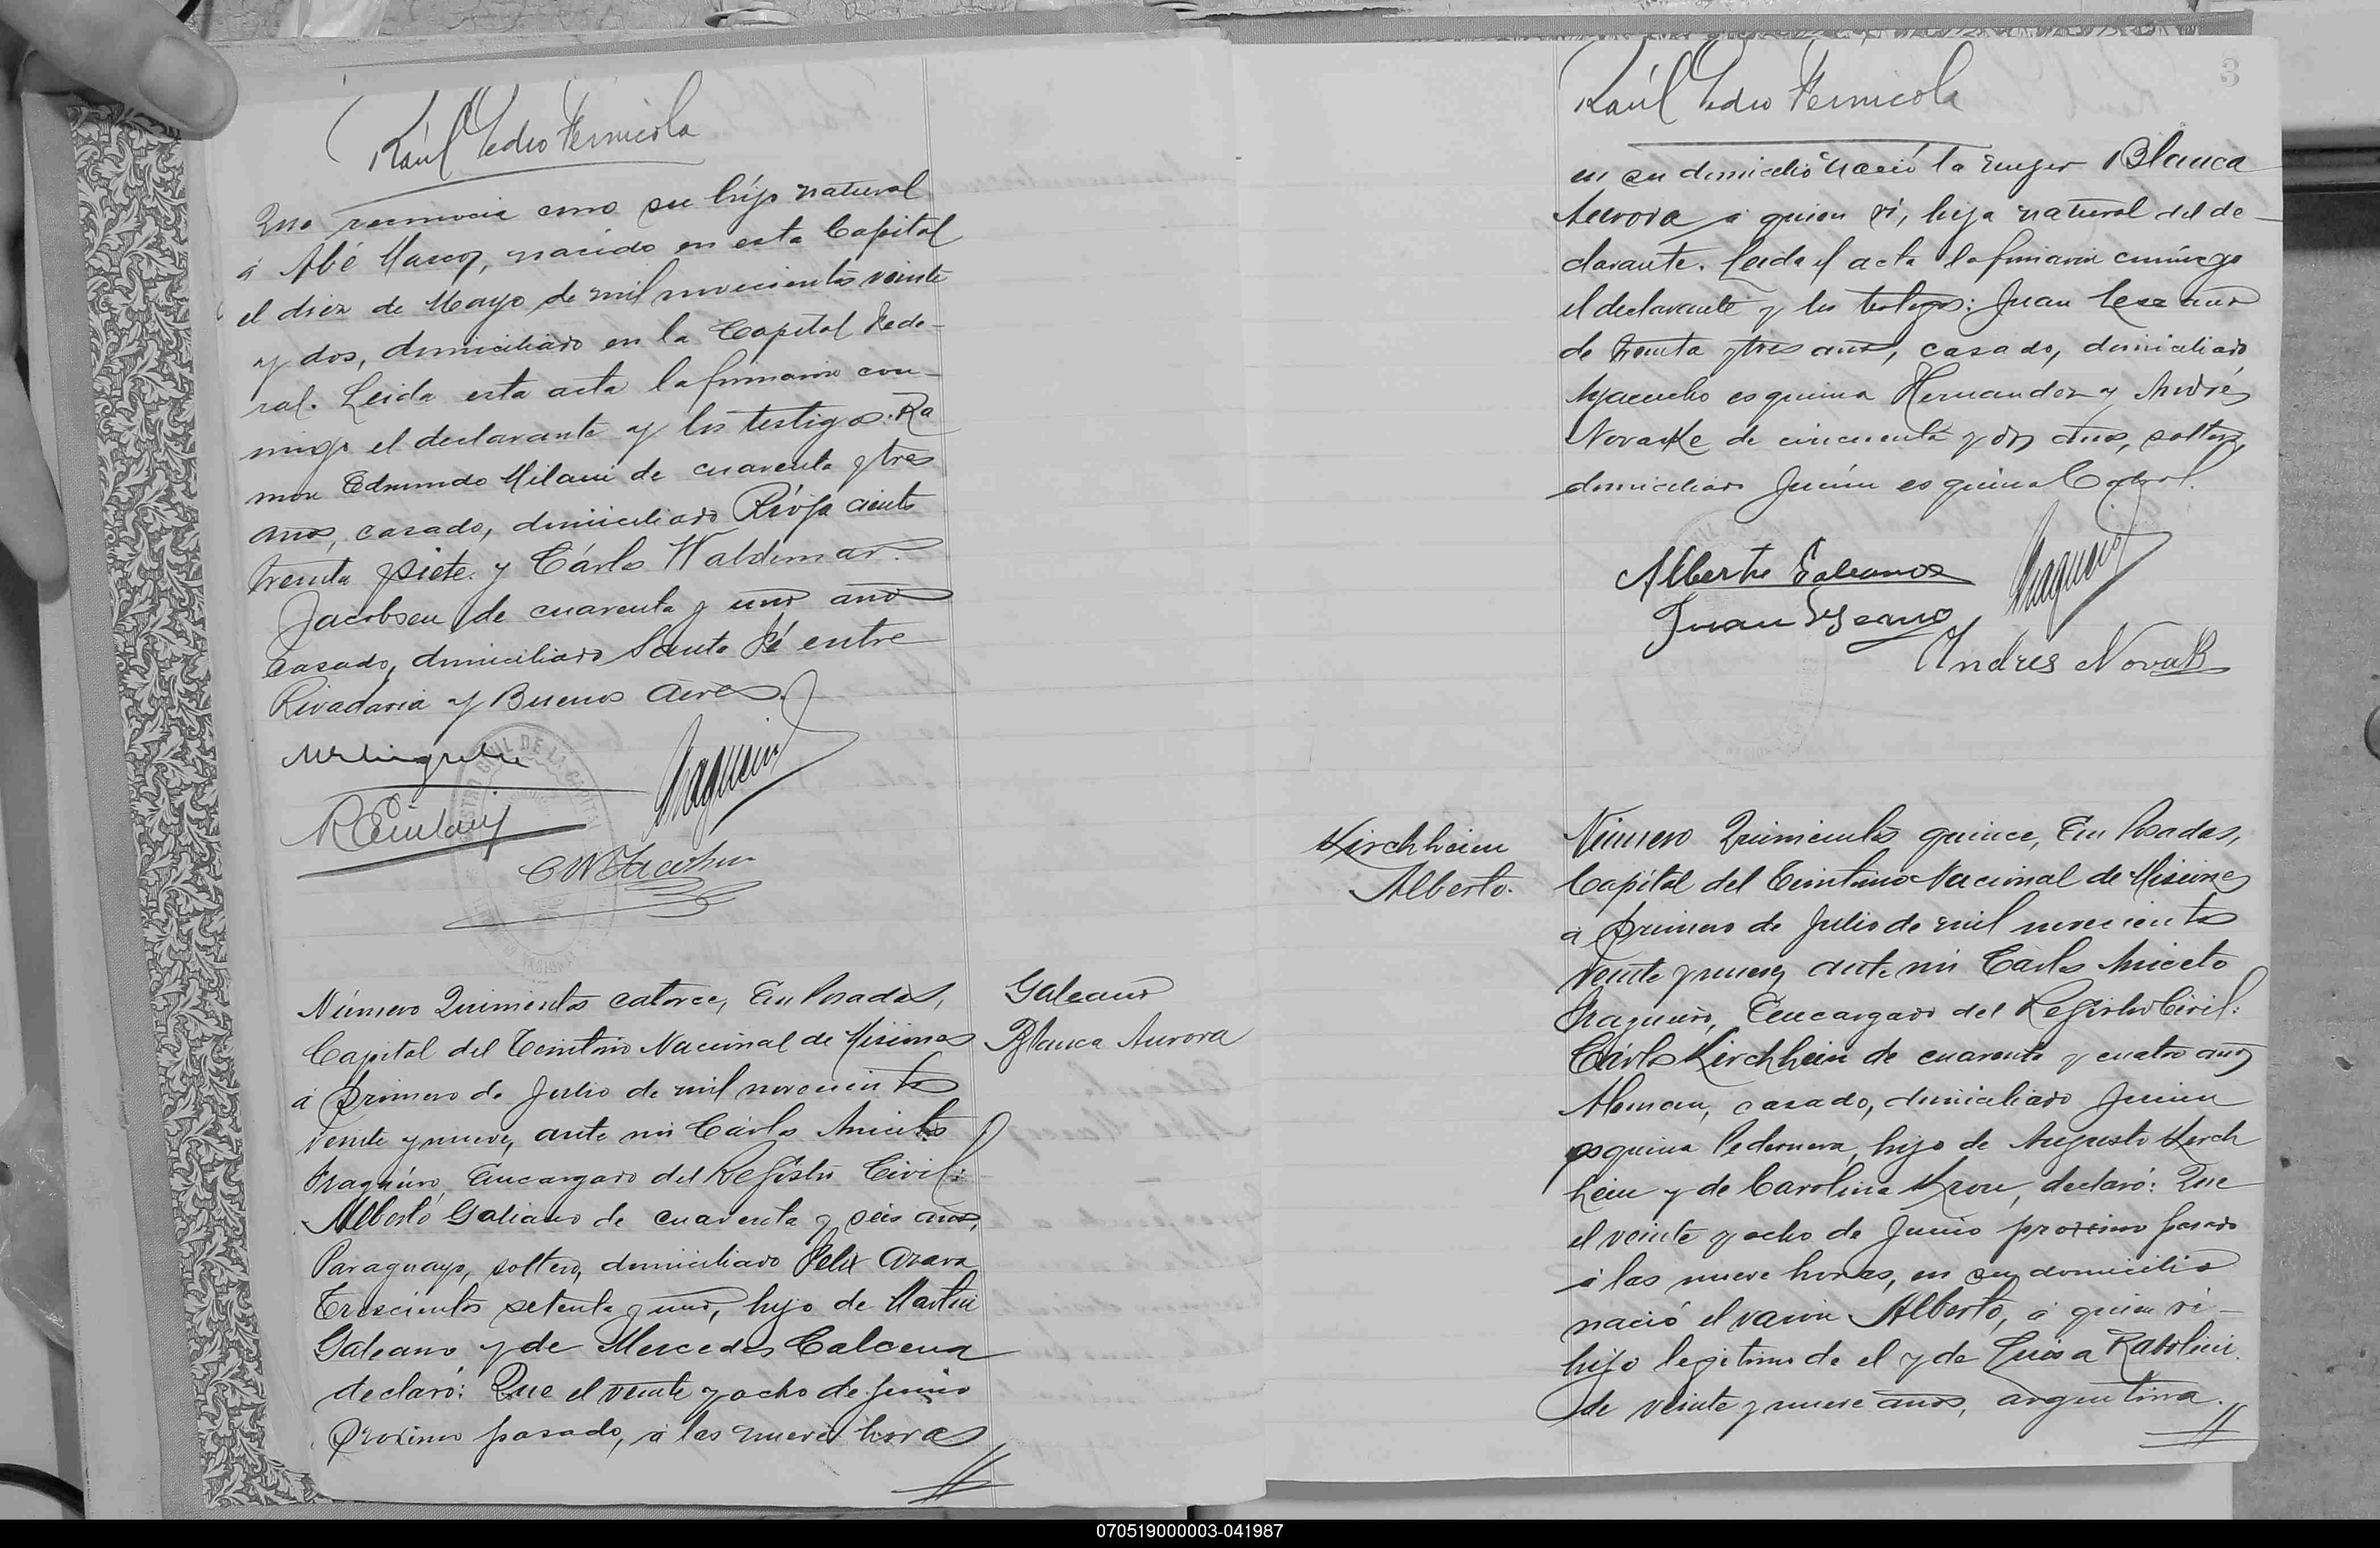 Raúl Pedro Fernicola
Que reconocia como su hijo natural
á Abé Marcos, nacido en esta Capital
el diez de Mayo de mil novecientos veinte
y dos, domiciliado en la Capital Fede-
ral. Leida esta acta la firmaron con-
migo el declarante y los testigos: Ra
mon Edmundo Milani de cuarenta y tres
anos, casado, domiciliado Rioja ciento
treinta y siete y Cárlos Waldemar
Jacobsen de cuarenta y uno anos
casado, domiciliado Santa Fé entre
Rivadavia y Buenos Aires.
REMilani
CWJacobsen
Número Quinientos catorce, En Posadas,
Capital del Territorio Nacional de Misiones
á primero de Julio de mil novecientos
veinte y nueve, ante mi Cárlos Aniceto
Encargado del Registro Civil:
Alberto Galeano de cuarenta y seis anos,
Paraguayo, soltero, domiciliado Felix Azara
Trescientos setenta y uno, hijo de Martin
Galeano y de Mercedes Calcena
declaró: Que el veinte y ocho de Junio
proximo pasado, á las nueve horas
Galeano
Blanca Aurora
3
Raúl Pedro Fernicola
en su domicilio nació la mujer Blanca
Aurora á quien ví, hija natural del de-
clarante. Leida el acta la firmaron conmigo
el declarante y los testigos: Juan Lezcano
de treinta y tres anos, casado, domiciliado
Ayacucho esquina Hernandez y Andrés
Novak de cincuenta y dos anos, soltero,
domiciliado Junin esquina Cabral.
Alberto Galeano
Juan Lezcano
Andres Novak
Kirchheim
Alberto.
Número Quinientos quince, En Posadas,
Capital del Territorio Nacional de Misiones
á primero de Julio de mil novecientos
veinte y nueve, ante mi Cárlos Aniceto
Encargado del Registro Civil:
Cárlos Kirchheim de cuarenta y cuatro anos
Aleman, casado, domiciliado Junin
esquina Pedernera, hijo de Augusto Kirch
heim y de Carolina Kron, declaró: Que
el veinte y ocho de Junio proximo pasado
á las nueve horas, en su domicilio
nació el varon Alberto, á quien ví-
hijo legitimo de el y de Luisa Rabolini
de veinte y nueve anos, argentina.
070519000003-041987